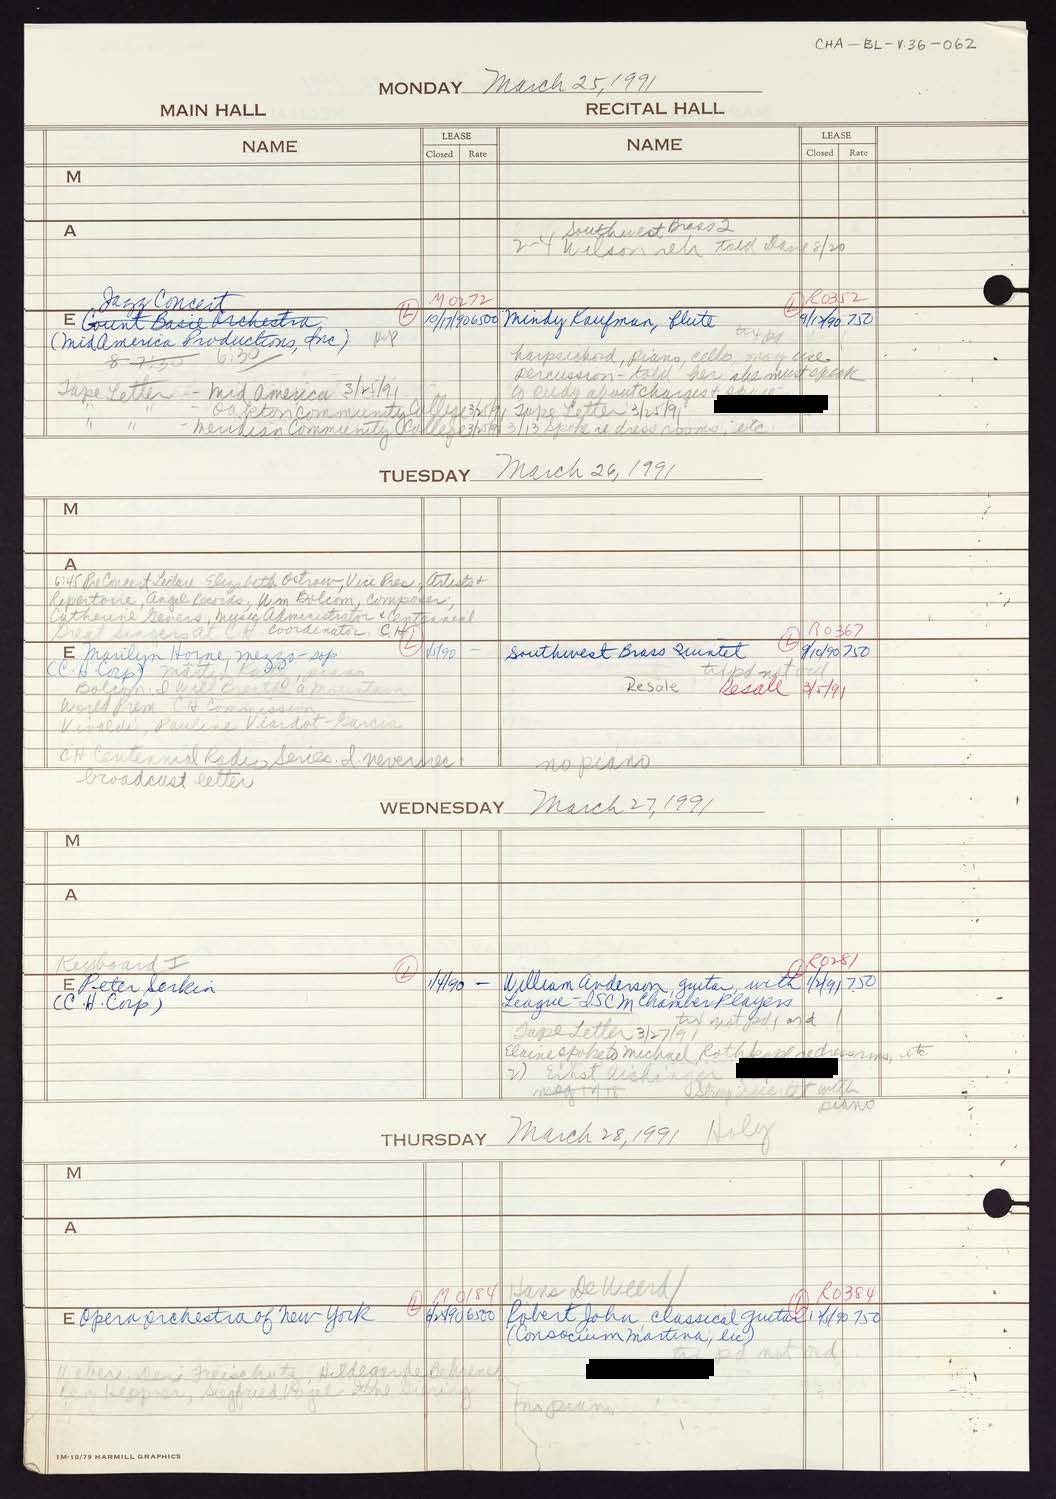 CHA-BL-V.36-062
MONDAY March 25, 1991
MAIN HALL RECITAL HALL
NAME LEASE Closed Rate NAME LEASE Closed Rate
M
A
Southwest Brass Q
2-4 Wilson reh told Dane 8/20
Jazz Concert M0272 R0352
E Count Basie Orchestra L 10/17/90 6500 Mindy Kaufman, flute L 9/12/90 750
(MidAmerica Productions, Inc) pup
8-7:30 6:30 harpsichord, piano, cello, may use
percussion - told her she must speak
Tape Letter - Mid America 3/25/91 to Rudy about charges +
" " - Oakton Community College 3/25/91 Tape Letter 3/25/91
" " - Meridian Community College 3/25/91 3/13 spoke re dress rooms, etc
TUESDAY March 26, 1991
M
A
6:45 PreConcert Lecture - Elizabeth Ostrow, Vice Pres. Artists +
Repertoire, Angel Records, Wm Bolcom, Composer,
Catherine Gevers, Music Administrator + Centennial
Great Singers at C H Coordinator, C.H. L R0367
E Marilyn Horne, mezzo-sop 1/5/90 - Southwest Brass Quintet L 9/10/90 750
(C.H. Corp) Martin Katz, piano txt pd not ord
Bolcom: I Will Breathe a Mountain Resale Resale 3/5/91
World Prem CH Commission
Vivaldi, Pauline Viardot-Garcia
CH Centennial Radio Series. I never rec no piano
broadcast letter
WEDNESDAY March 27, 1991
M
A
Keyboard I R0281
E Peter Serkin L 1/4/90 - William Anderson, guitar, with L 1/2/91 750
(C.H. Corp) League-ISCM Chamber Players
txt not pd, ord
Tape Letter 3/27/91
Elaine spoke to Michael Roth re dress rms, etc
2) Ernst
String Quartet with
piano
THURSDAY March 28, 1991 Holy
M
A
Hans De Weerd/
M0184 R0384
E Opera Orchestra of New York L 6500 Robert John, classical guitar L 750
(Consocium Martina, Inc)
txt pd not ord
Weber: Der Freischutz, Hildegarde Behrens
Ben Heppner, Siegfried Vogel
no piano
1M-10/79 HARMILL GRAPHICS